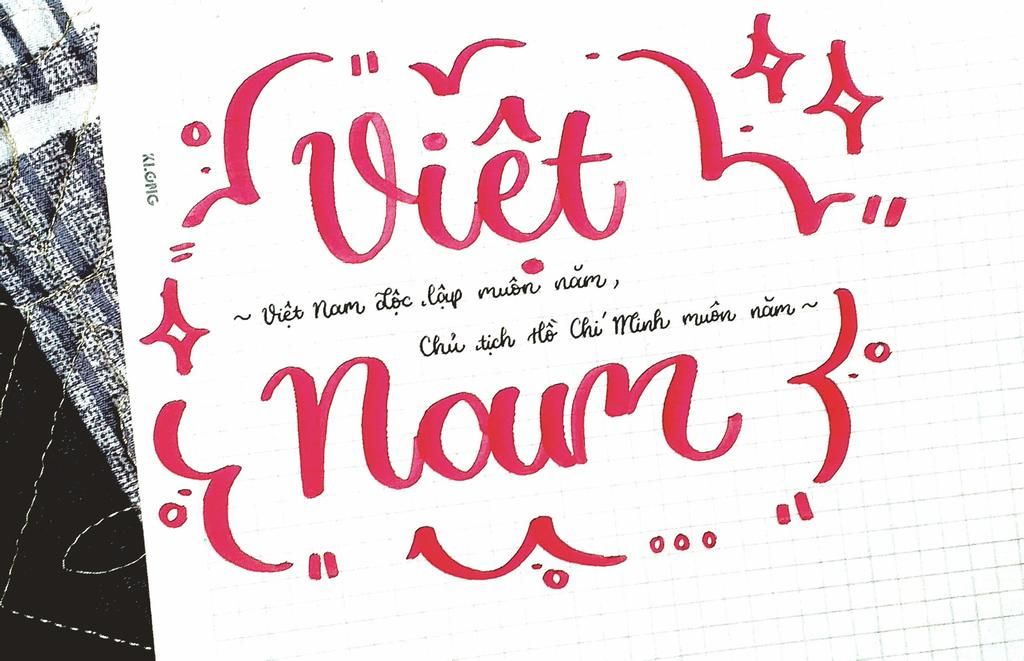 KI.OMG
Việt
~ Việt Nam độc lập muôn năm,
Chủ tịch Hồ Chí Minh muôn năm ~
Nam